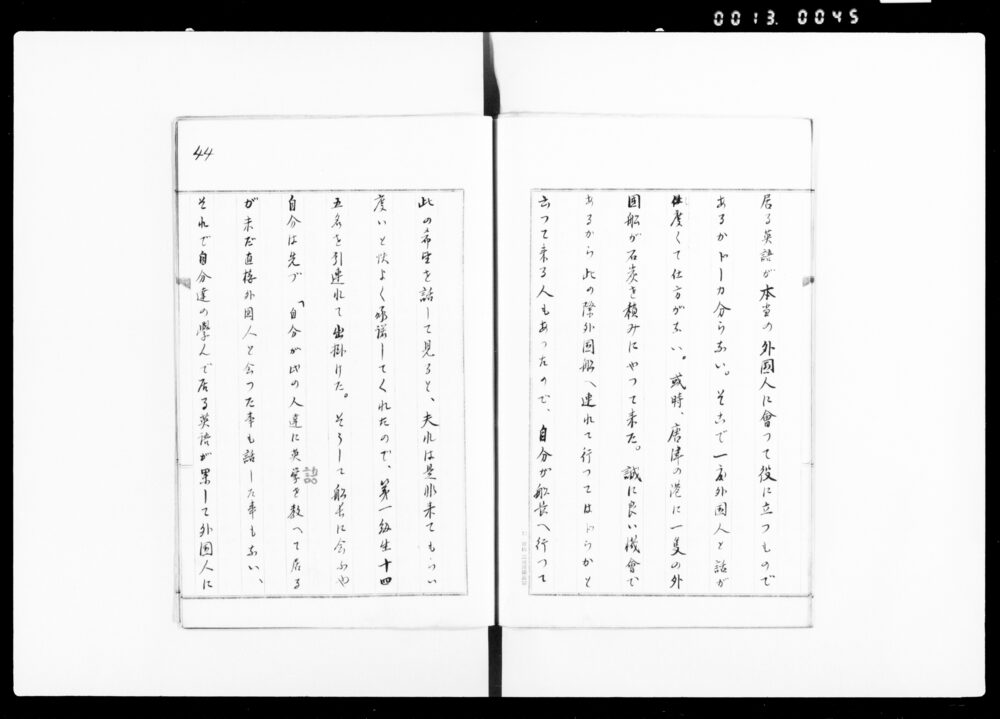 0013.0045
居る英語が本当の外国人に會つて役に立つもので
あるかドーカ分らない。そこで一度外国人と話が
仕度くて仕方がない。或時、唐津の港に一隻の外
国船が石炭を積みにやつて来た。誠に良い機會で
あるから此の際外国船へ連れて行つてはドうかと
云つて来る人もあつたので、自分が船長へ行つて
44
此の希望を話して見ると、夫れは是非来てもらい
度いと快よく承諾してくれたので、第一級生十四
五名を引連れて出掛けた。そうして船長に会ふや
自分は先づ「自分が此の人達に英学を教へて居る
語
が未だ直接外国人と会つた事も話した事もない、
それで自分達の學んで居る英語が果して外国人に